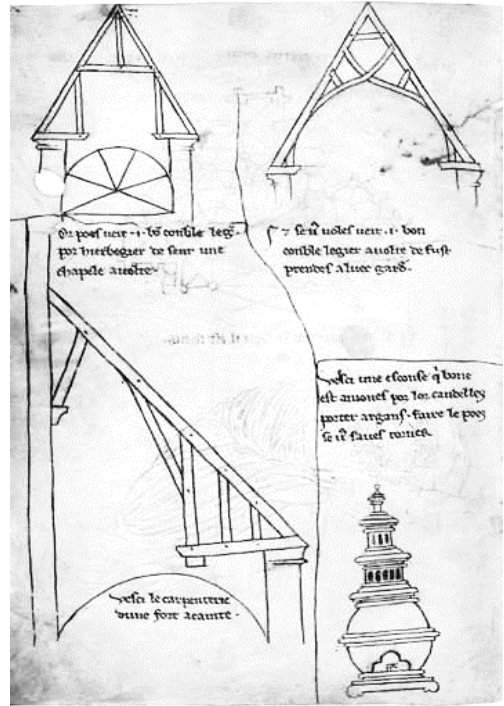 Or poes veir .i. bō conble leg̃.
por hierbegier de seur une
chapele a volte.
⁊ se ṽ voles veir .i. bon
conble legier a volte de fust
prendes aluec garđ.
Vesci une esconse q̃ bone
est a mones por lor candelles
porter argans. faire le poes
se ṽ saves torner.
Vesci le carpenterie
dune fort acainte.